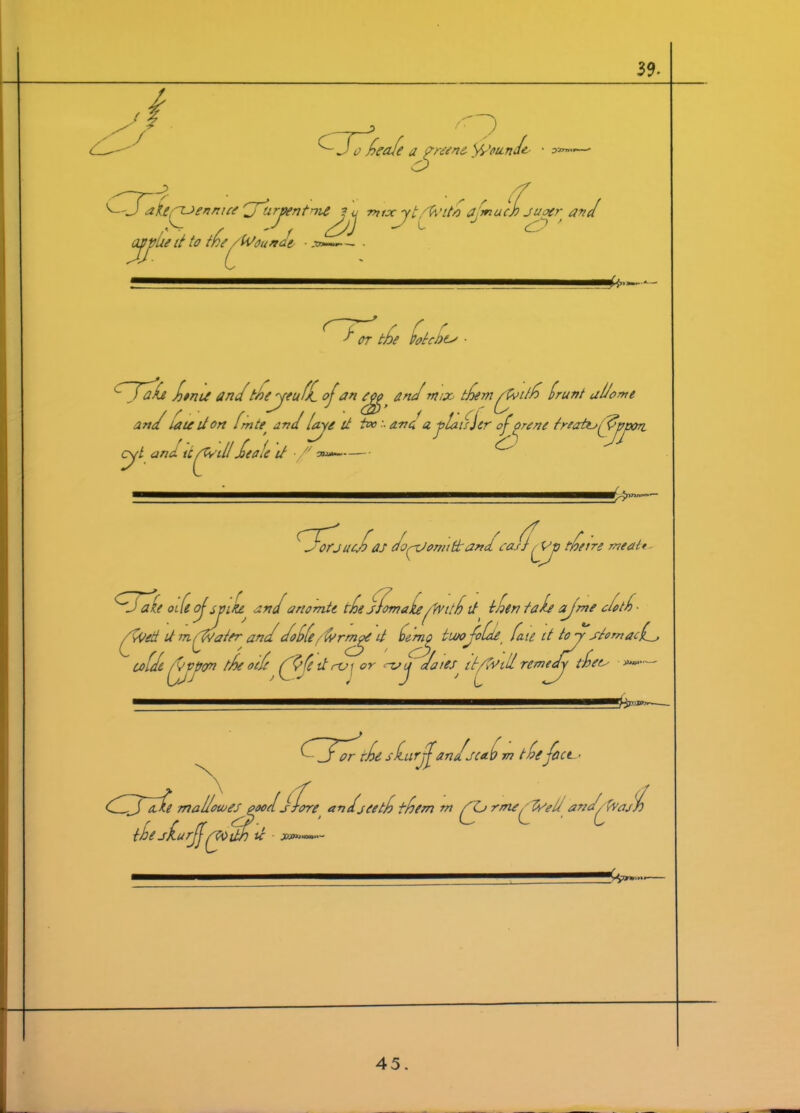 39.
To heale a greene Wounde
Take vennice Turpentine ij mix yt with asmuch suger and
applie it to the Wounde
For the botches
Take honie and the yeulk of an egg and mix them with brunt allome
and laie it on linte and laye it too: and a plaister of grene treate vppon
yt and it will heale it
For such as do vomitt and cast vp theire meate
Take oile of spike and anointe the stomake with it then take a fine cloth
Wett it in Water and doble Wringe it being twofolde laie it to yͤ stomack
colde vppon the oile Vse it vj or vij daies it Will remedy thee
For the skurff and scab in the face
Take mallowes good store and seeth them in Vrine Well and Wash
the skurff with it
45.